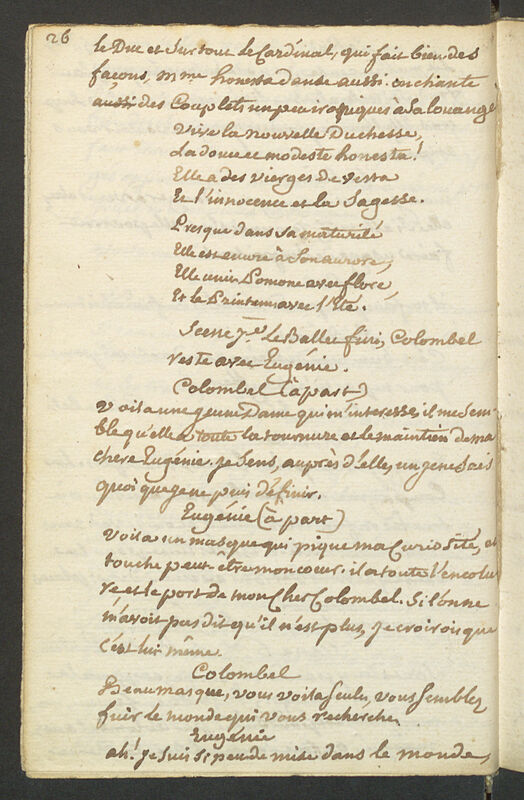 26
le Duc et surtout le Cardinal, qui fait bien des
façons, Mme honesta danse aussi. on chante
aussi des Couplets un peu à sa louange
Vive la nouvelle Duchesse,
La douce et modeste honesta!
Elle a des vierges de vesta
Et l'innocence et la Sagesse.
Presque dans sa maturité
Elle est encore à son aurore,
Elle unit Pomone avec flore,
Et le Printems avec l'Eté.
Scene 7e. Le Ballet fini, Colombel
reste avec Eugénie.
Colombel (à part)
Voila une jeune Dame qui m'interesse, il me sem-
ble qu'elle a toute la tournure et le maintien de ma
chere Eugénie. je sens, auprès d'elle, un je ne sais
quoi que je ne puis définir.
Eugénie (à part)
Voila un masque qui pique ma Curiosité, et
touche peut-être mon cœur. il a toute l'encolu
re et le port de mon Cher Colombel. Si l'on ne
m'avoit pas dit qu'il n'est plus, je croirois que
c'est lui même.
Colombel
Beau masque, vous voila seule, vous semblez
fuir le monde qui vous recherche.
Eugénie
ah! je suis si peu de mise dans le monde,